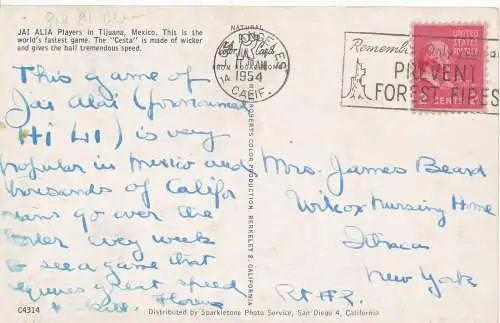 JAI ALIA Players in Tijuana, Mexico. This is the
world's fastest game. The "Cesta" is made of wicker
and gives the ball tremendous speed.
This game of
Jai Alai (pronounced
Hi Li) is very
popular in Mexico and
thousands of Califor
nians go over the
border every week
to see a game that
requires great speed
& skill. Florence
C4314
NATURAL
LOS ANGELES
AM
1954
CALIF.
Remember Only You
PREVENT
FOREST FIRES
UNITED STATES
POSTAGE
2 CENTS 2
ROBERTS COLOR PRODUCTION, BERKELEY 2, CALIFORNIA
Mrs. James Beard
Wilcox Nursing Home
Ithaca
New York
Distributed by Sparkletone Photo Service, San Diego 4, California